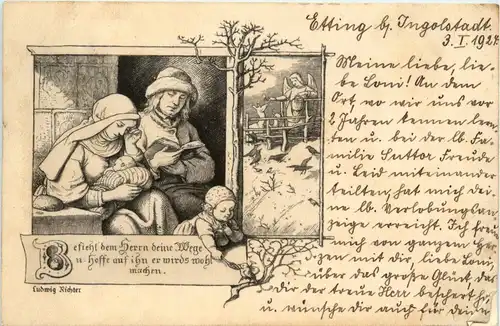 Etting b. Ingolstadt.
3. I. 1927
Meine liebe, lie-
be Loni! An dem
Ort, wo wir uns vor
2 Jahren kennen lern-
ten u. bei der lb. Fa-
milie Suttor Freude
u. Leid miteinander
teilten, hat mich dei-
ne lb. Verlobungsan-
zeige erreicht. Ich freu
mich von ganzem Her-
zen mit dir, liebe Loni
über das große Glück, das
dir der treue Herr beschert h.
u. wünsche dir auch für deine
Befiehl dem Herrn deine Wege
u. hoffe auf ihn er wirds wohl
machen.
Ludwig Richter